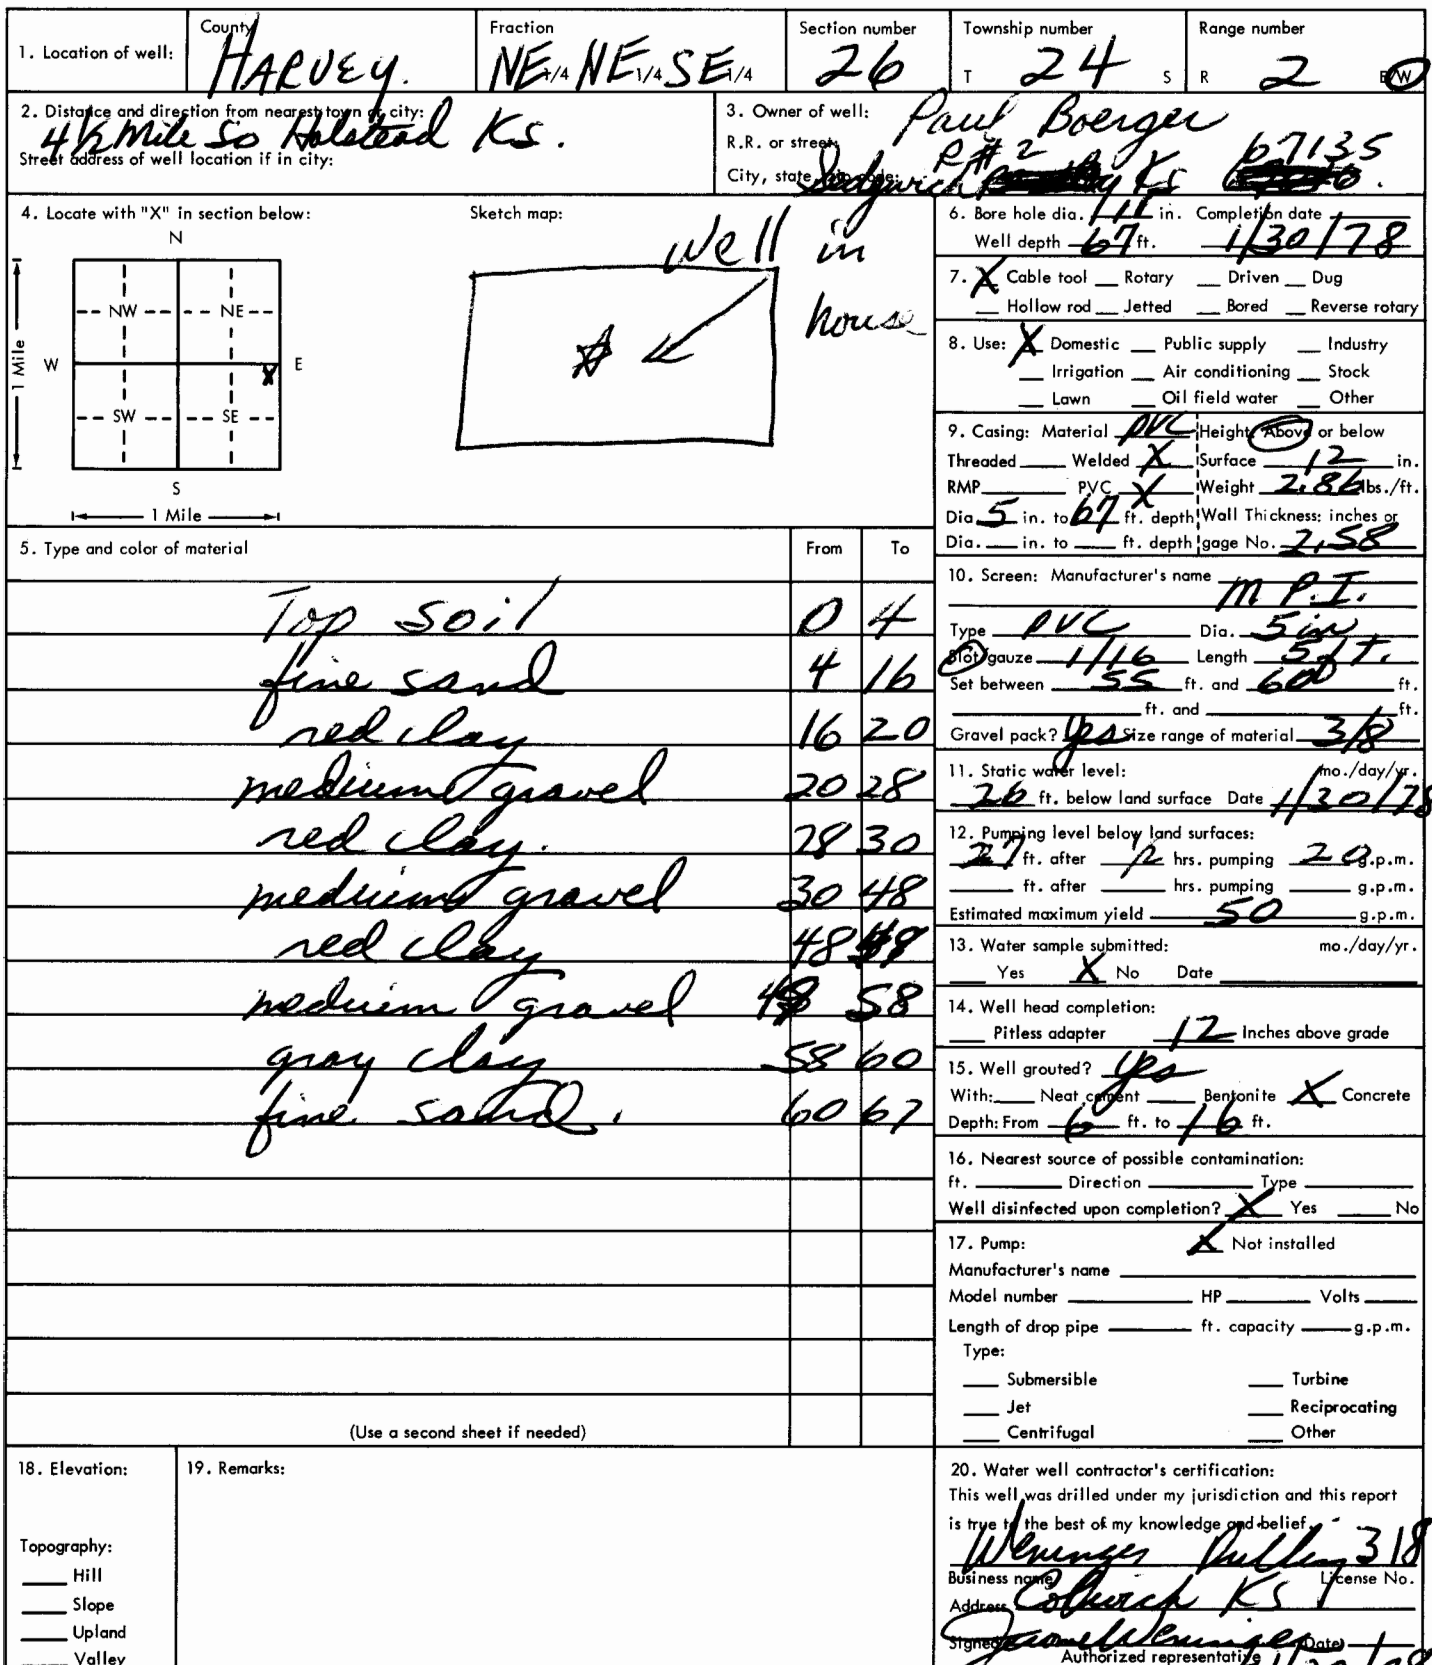 1. Location of well: County HARVEY. Fraction NE 1/4 NE 1/4 SE 1/4 Section number 26 Township number T 24 S Range number R 2 E/W
2. Distance and direction from nearest town or city: 4 1/2 Mile So Halstead KS.
Street address of well location if in city:
3. Owner of well: Paul Boerger
R.R. or street: R#2 67135
City, state, zip code: Sedgwick KS
4. Locate with "X" in section below:
N
NW NE
W E
X
SW SE
S
1 Mile
1 Mile
Sketch map:
well in
house
5. Type and color of material From To
Top soil 0 4
fine sand 4 16
red clay 16 20
medium gravel 20 28
red clay. 28 30
medium gravel 30 48
red clay 48
medium gravel 58
gray clay 58 60
fine sand. 60 67
(Use a second sheet if needed)
6. Bore hole dia. 11 in. Completion date
Well depth 67 ft. 1/30/78
7. X Cable tool __ Rotary __ Driven __ Dug
__ Hollow rod __ Jetted __ Bored __ Reverse rotary
8. Use: X Domestic __ Public supply __ Industry
__ Irrigation __ Air conditioning __ Stock
__ Lawn __ Oil field water __ Other
9. Casing: Material PVC Height: Above or below
Threaded ___ Welded X Surface 12 in.
RMP ___ PVC X Weight 2.86 lbs./ft.
Dia. 5 in. to 67 ft. depth Wall Thickness: inches or
Dia. __ in. to __ ft. depth gage No. 2.58
10. Screen: Manufacturer's name
M P.I.
Type PVC Dia. 5 in
Slot/gauze 1/16 Length 5 ft.
Set between 55 ft. and 60 ft.
___ ft. and ___ ft.
Gravel pack? Yes Size range of material 3/8
11. Static water level: mo./day/yr.
26 ft. below land surface Date 1/30/78
12. Pumping level below land surfaces:
27 ft. after hrs. pumping 20 g.p.m.
___ ft. after ___ hrs. pumping ___ g.p.m.
Estimated maximum yield 50 g.p.m.
13. Water sample submitted: mo./day/yr.
__ Yes X No Date ___
14. Well head completion:
__ Pitless adapter 12 Inches above grade
15. Well grouted? yes
With: __ Neat cement __ Bentonite X Concrete
Depth: From 6 ft. to 16 ft.
16. Nearest source of possible contamination:
ft. ___ Direction ___ Type ___
Well disinfected upon completion? X Yes ___ No
17. Pump: X Not installed
Manufacturer's name ___
Model number ___ HP ___ Volts ___
Length of drop pipe ___ ft. capacity ___ g.p.m.
Type:
__ Submersible __ Turbine
__ Jet __ Reciprocating
__ Centrifugal __ Other
18. Elevation:
Topography:
__ Hill
__ Slope
__ Upland
__ Valley
19. Remarks:
20. Water well contractor's certification:
This well was drilled under my jurisdiction and this report
is true to the best of my knowledge and belief.
Weninger Drilling 318
Business name License No.
Address Colwich KS
Signed Weninger Date
Authorized representative